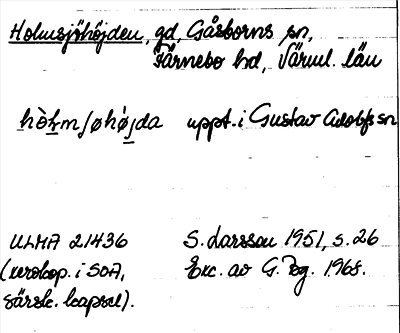 Holmsjöhöjden, gd, Gåsborns sn,
Färnebo hd, Värml. län
hòḻmʃøhö́jda uppt. i Gustav Adolfs sn
ULMA 21436 S. Larsson 1951, s. 26
(xerokop. i SOA, Exc. av G. 1968.
särsk. kapsel).